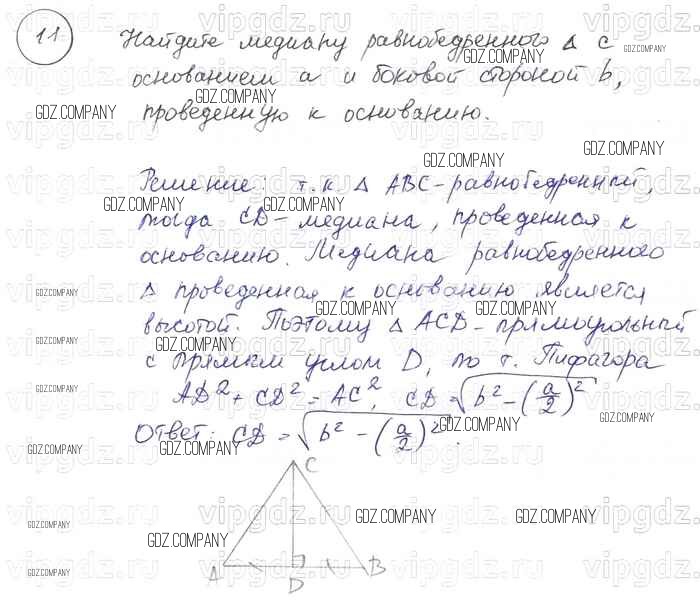 11 Найдите медиану равнобедренного Δ с
основанием a и боковой стороной b,
проведенную к основанию.
Решение: т.к Δ ABC-равнобедренный,
тогда CD-медиана, проведенная к
основанию. Медиана равнобедренного
Δ проведенная к основанию является
высотой. Поэтому Δ ACD-прямоугольный
с прямым углом D, по т. Пифагора
AD² + CD² = AC², CD = √(b² - (a/2)²)
Ответ: CD = √(b² - (a/2)²).
C
A D B
GDZ.COMPANY
vipgdz.ru